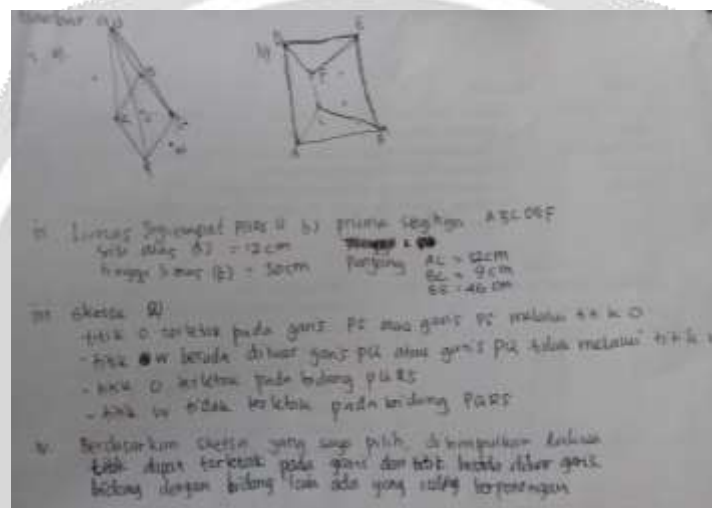 Gambar a)
b)
ii Limas Segiempat PQRS U b) prisma segitiga ABCDEF
sisi alas = 12 cm
tinggi limas (t) = 30 cm Panjang AC = 12 cm
BC = 9 cm
BE = 46 cm
iii sketsa a)
- titik O terletak pada garis PS atau garis PS melalui titik O
- titik W berada diluar garis PU atau garis PU tidak melalui titik
- titik O terletak pada bidang PQRS
- titik W tidak terletak pada bidang PQRS
iv Berdasarkan sketsa yang saya pilih, disimpulkan bahwa
titik dapat terletak pada garis dan titik berada diluar garis
bidang dengan bidang lain ada yang saling berpotongan